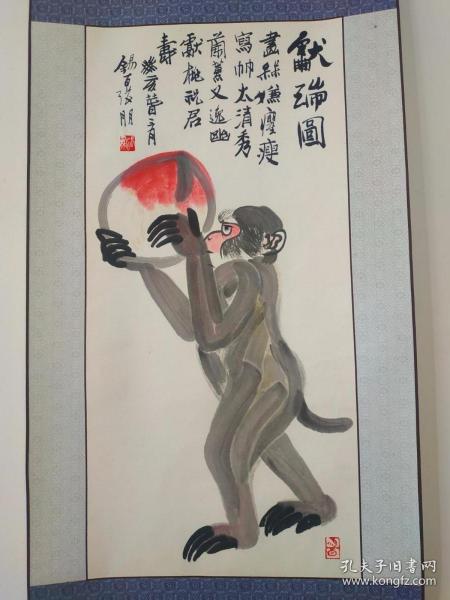 獻瑞圖
畫嫌癯瘦
寫竹太清秀
蘭蕙又逸幽
獻桃祝君
壽
癸亥月
錫百張朋
孔夫子旧书网
www.kongfz.com